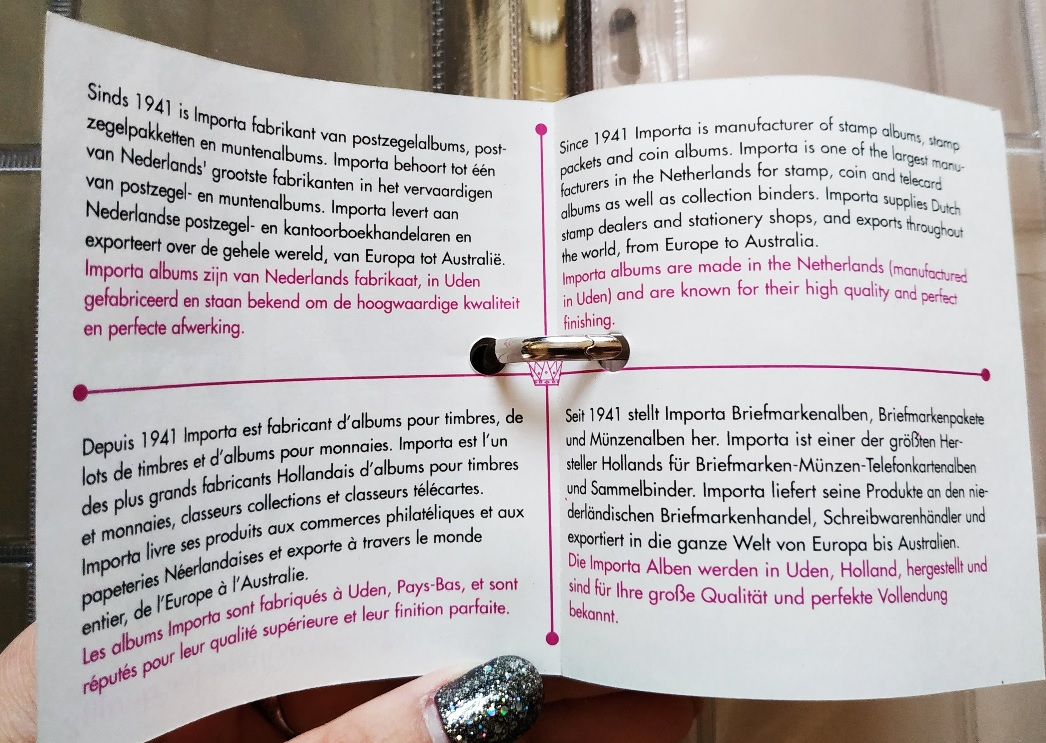 Sinds 1941 is Importa fabrikant van postzegelalbums, post-
zegelpakketten en muntenalbums. Importa behoort tot één
van Nederlands' grootste fabrikanten in het vervaardigen
van postzegel- en muntenalbums. Importa levert aan
Nederlandse postzegel- en kantoorboekhandelaren en
exporteert over de gehele wereld, van Europa tot Australië.
Importa albums zijn van Nederlands fabrikaat, in Uden
gefabriceerd en staan bekend om de hoogwaardige kwaliteit
en perfecte afwerking.
Since 1941 Importa is manufacturer of stamp albums, stamp
packets and coin albums. Importa is one of the largest manu-
facturers in the Netherlands for stamp, coin and telecard
albums as well as collection binders. Importa supplies Dutch
stamp dealers and stationery shops, and exports throughout
the world, from Europe to Australia.
Importa albums are made in the Netherlands (manufactured
in Uden) and are known for their high quality and perfect
finishing.
Depuis 1941 Importa est fabricant d'albums pour timbres, de
lots de timbres et d'albums pour monnaies. Importa est l'un
des plus grands fabricants Hollandais d'albums pour timbres
et monnaies, classeurs collections et classeurs télécartes.
Importa livre ses produits aux commerces philatéliques et aux
papeteries Néerlandaises et exporte à travers le monde
entier, de l'Europe à l'Australie.
Les albums Importa sont fabriqués à Uden, Pays-Bas, et sont
réputés pour leur qualité supérieure et leur finition parfaite.
Seit 1941 stellt Importa Briefmarkenalben, Briefmarkenpakete
und Münzenalben her. Importa ist einer der größten Her-
steller Hollands für Briefmarken-Münzen-Telefonkartenalben
und Sammelbinder. Importa liefert seine Produkte an den nie-
derländischen Briefmarkenhandel, Schreibwarenhändler und
exportiert in die ganze Welt von Europa bis Australien.
Die Importa Alben werden in Uden, Holland, hergestellt und
sind für Ihre große Qualität und perfekte Vollendung
bekannt.